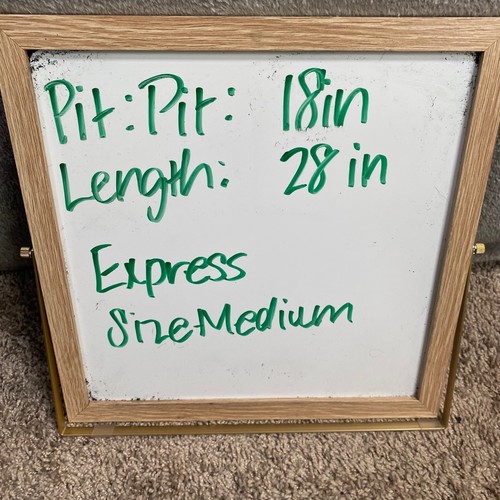 Pit:Pit: 18in
Length: 28 in
Express
Size-Medium